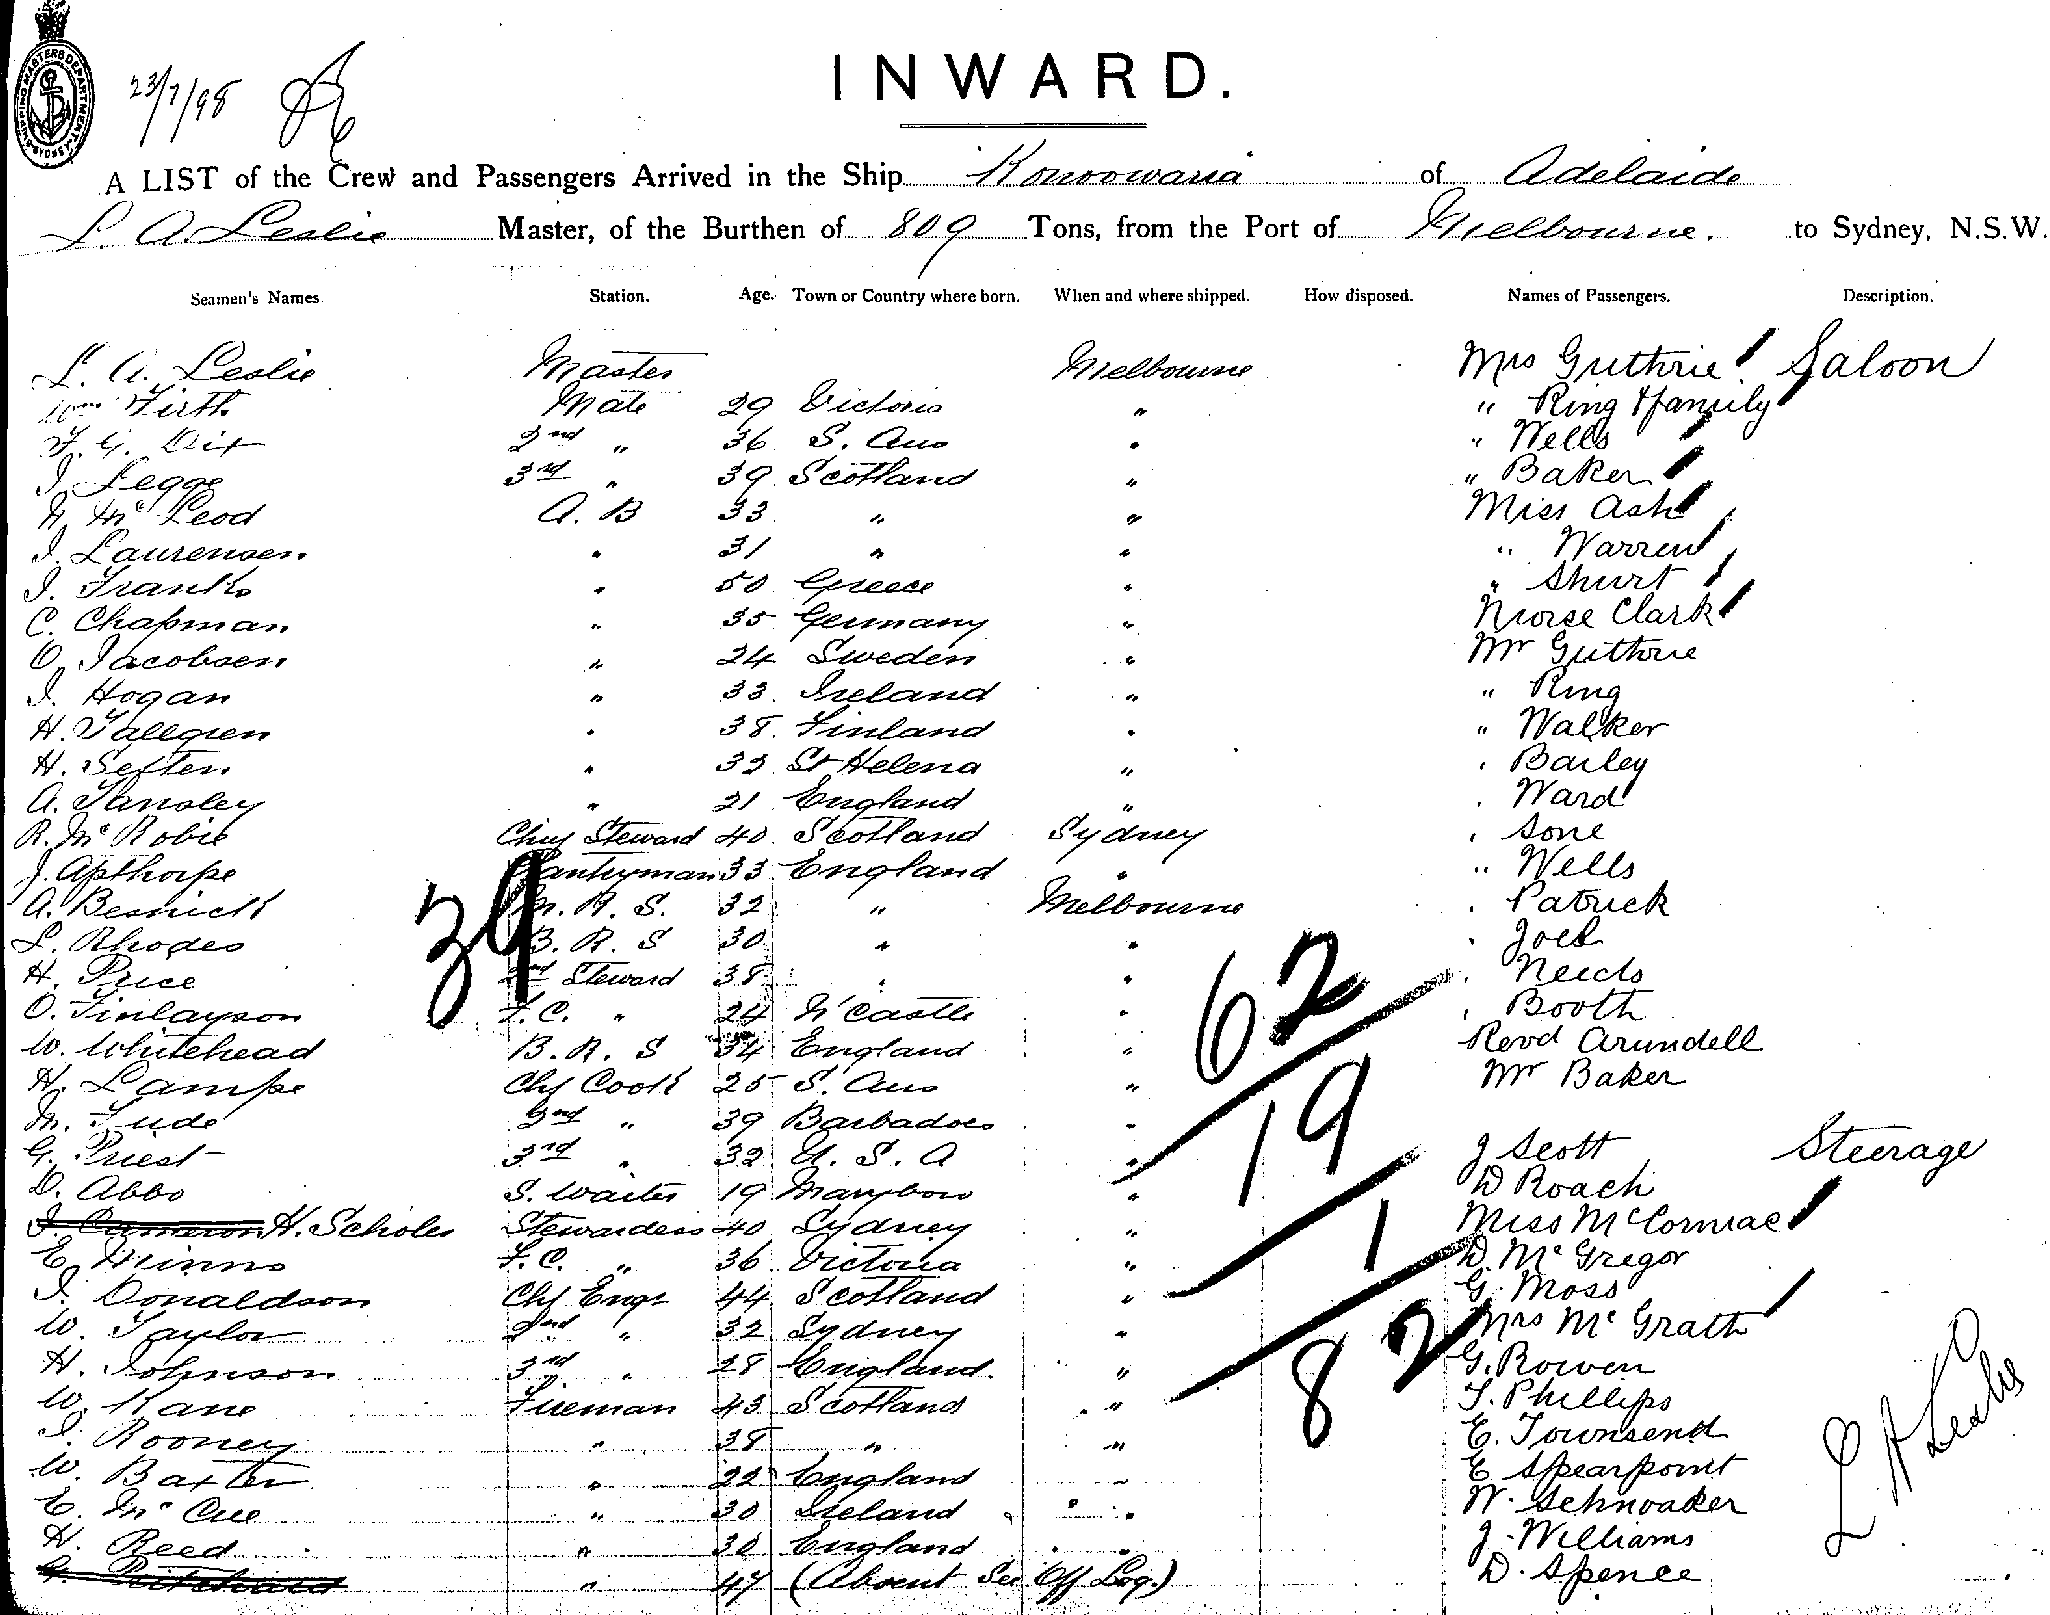 23/7/98
INWARD.
A LIST of the Crew and Passengers Arrived in the Ship Konoowarra of Adelaide
L. A. Leslie Master, of the Burthen of 809 Tons, from the Port of Melbourne. to Sydney, N.S.W.
Seamen's Names Station. Age. Town or Country where born. When and where shipped. How disposed. Names of Passengers. Description.
L. A. Leslie Master Melbourne Mrs Guthrie Saloon
Wm Firth Mate 29 Victoria " " Ring & family
F. G. Dix 2nd " 36 S. Aus " " Wells
J. Legge 3rd " 39 Scotland " " Baker
N. McLeod A. B 33 " " Miss Ash
J. Laurensen " 31 " " " Warren
J. Franks " 50 Greece " " Shurt
C. Chapman " 35 Germany " Nurse Clark
O. Jacobsen " 24 Sweden " Mr Guthrie
J. Hogan " 33 Ireland " " Ring
H. Tallgren " 38 Finland " " Walker
H. Seften " 33 St Helena " " Bailey
A. Tansley " 21 England " " Ward
R. McRobie Chief Steward 40 Scotland Sydney " Sone
J. Apthorpe Pantryman 33 England " " Wells
A. Besnick M. R. S. 32 " Melbourne " Patrick
L. Rhodes B. R. S 30 " " " Joel
H. Price 2nd Steward 38 " " " Neids
O. Finlayson F. C. " 24 N'Castle " " Booth
W. Whitehead B. R. S 34 England " Revd Arundell
H. Lampe Chf Cook 25 S. Aus " Mr Baker
M. Jude 2nd " 39 Barbadoes "
G. Priest 3rd " 32 U. S. A " J Scott Steerage
D. Abbo S. Waiter 19 Maryboro " D Roach
J. Cameron H. Scholes Stewardess 40 Sydney " Miss McCormac
E. Minns F. C. " 36 Victoria " D. McGregor
J. Donaldson Chf Engr 44 Scotland " G. Moss
W. Taylor 2nd " 32 Sydney " Mrs McGrath
H. Johnson 3rd " 28 England. " G. Rowen
W. Kane Fireman 43 Scotland " T. Phillips
J. Rooney " 38 " " E. Townsend
W. Baxter " 22 England " E Spearpoint
E. McCue " 30 Ireland " W. Schnoaker
H. Reed " 30 England " J. Williams
G. Pritchard " 47 (Absent See Off Log.) D. Spence
39
62
19
1
82
L A Leslie